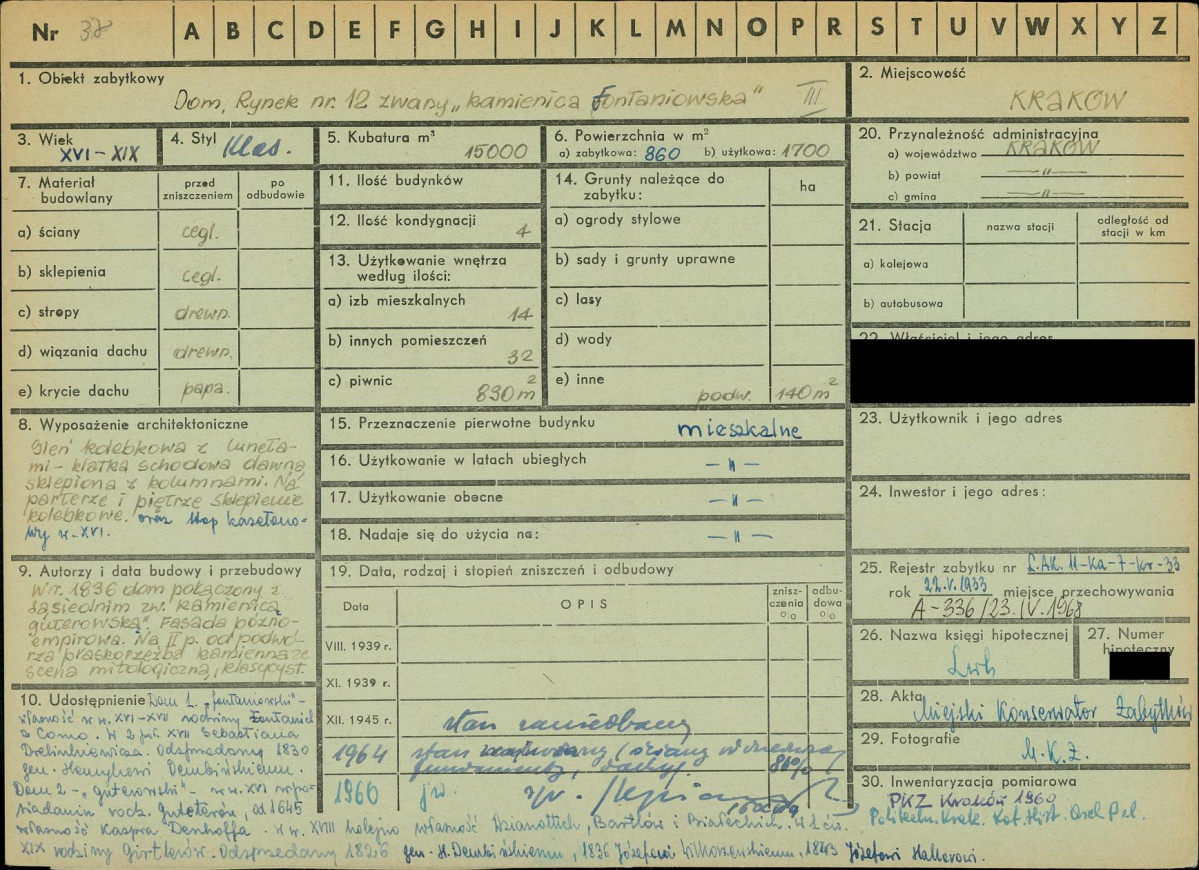 Nr 37 A B C D E F G H I J K L M N O P R S T U V W X Y Z
1. Obiekt zabytkowy
Dom, Rynek nr. 12 zwany „kamienica Fontaniowska" III
2. Miejscowość
KRAKÓW
3. Wiek
XVI - XIX
4. Styl Klas.
5. Kubatura m³
15000
6. Powierzchnia w m²
a) zabytkowa: 860 b) użytkowa: 1700
20. Przynależność administracyjna
a) województwa KRAKÓW
b) powiat —"—
c) gmina —"—
7. Materiał budowlany
przed zniszczeniem
po odbudowie
a) ściany cegl.
b) sklepienia cegl.
c) stropy drewn.
d) wiązania dachu drewn.
e) krycie dachu papa.
11. Ilość budynków
12. Ilość kondygnacji
4
13. Użytkowanie wnętrza
według ilości:
a) izb mieszkalnych
14
b) innych pomieszczeń
32
c) piwnic
830 m²
14. Grunty należące do
zabytku:
ha
a) ogrody stylowe
b) sady i grunty uprawne
c) lasy
d) wody
e) inne
podw. 140 m²
21. Stacja
nazwa stacji
odległość od
stacji w km
a) kolejowa
b) autobusowa
22. Właściciel i jego adres
23. Użytkownik i jego adres
24. Inwestor i jego adres:
8. Wyposażenie architektoniczne
Sień kolebkowa z luneta-
mi - klatka schodowa dawna
sklepiona z kolumnami. Na
parterze i piętrze sklepienie
kolebkowe. oraz strop kasetono-
wy w. XVI.
15. Przeznaczenie pierwotne budynku
mieszkalne
16. Użytkowanie w latach ubiegłych
—"—
17. Użytkowanie obecne
—"—
18. Nadaje się do użycia na:
—"—
9. Autorzy i data budowy i przebudowy
W r. 1836 dom połączony z
sąsiednim zw. „kamienicą
guterowską". Fasada późno-
empirowa. Na II p. od podwó-
rza płaskorzeźba kamienna ze
sceną mitologiczną, klasycyst.
19. Data, rodzaj i stopień zniszczeń i odbudowy
Data
OPIS
znisz-
czenia
%
odbu-
dowa
%
VIII. 1939 r.
XI. 1939 r.
XII. 1945 r.
stan zaniedbany
1964 stan
fundamenty, dachy). 86%
1960 jw.
25. Rejestr zabytku nr L.AK. II-Ka-7-kr-33
rok 22.V.1933 miejsce przechowywania
A-336/23.IV.1968
26. Nazwa księgi hipotecznej
Lwh
27. Numer
hipoteczny
28. Akta
Miejski Konserwator Zabytków
29. Fotografie
M.K.Z.
30. Inwentaryzacja pomiarowa
PKZ Kraków 1960
Politechn. Krak. Kat. Hist. Arch. Pol.
10. Udostępnienie Dom 1. „fontanowski"-
własność w w. XVI-XVII rodziny Fontanich
z Como. W 2 poł. XVII Sebastiana
Drelinkiewicza. Odsprzedany 1830
gen. Henrykowi Dembińskiemu.
Dom 2 - „guterowski" - w w. XVI w po-
siadaniu rodz. Guteterów, od 1645
własność Kaspra Denhoffa. W w. XVIII kolejno własność Dzianottich, Bartlów i Białeckich. W 1 ćw.
XIX rodziny Girtlerów. Odsprzedany 1826 gen. H. Dembińskiemu, 1836 Józefowi Wilkoszewskiemu, 1843 Józefowi Hallerowi.